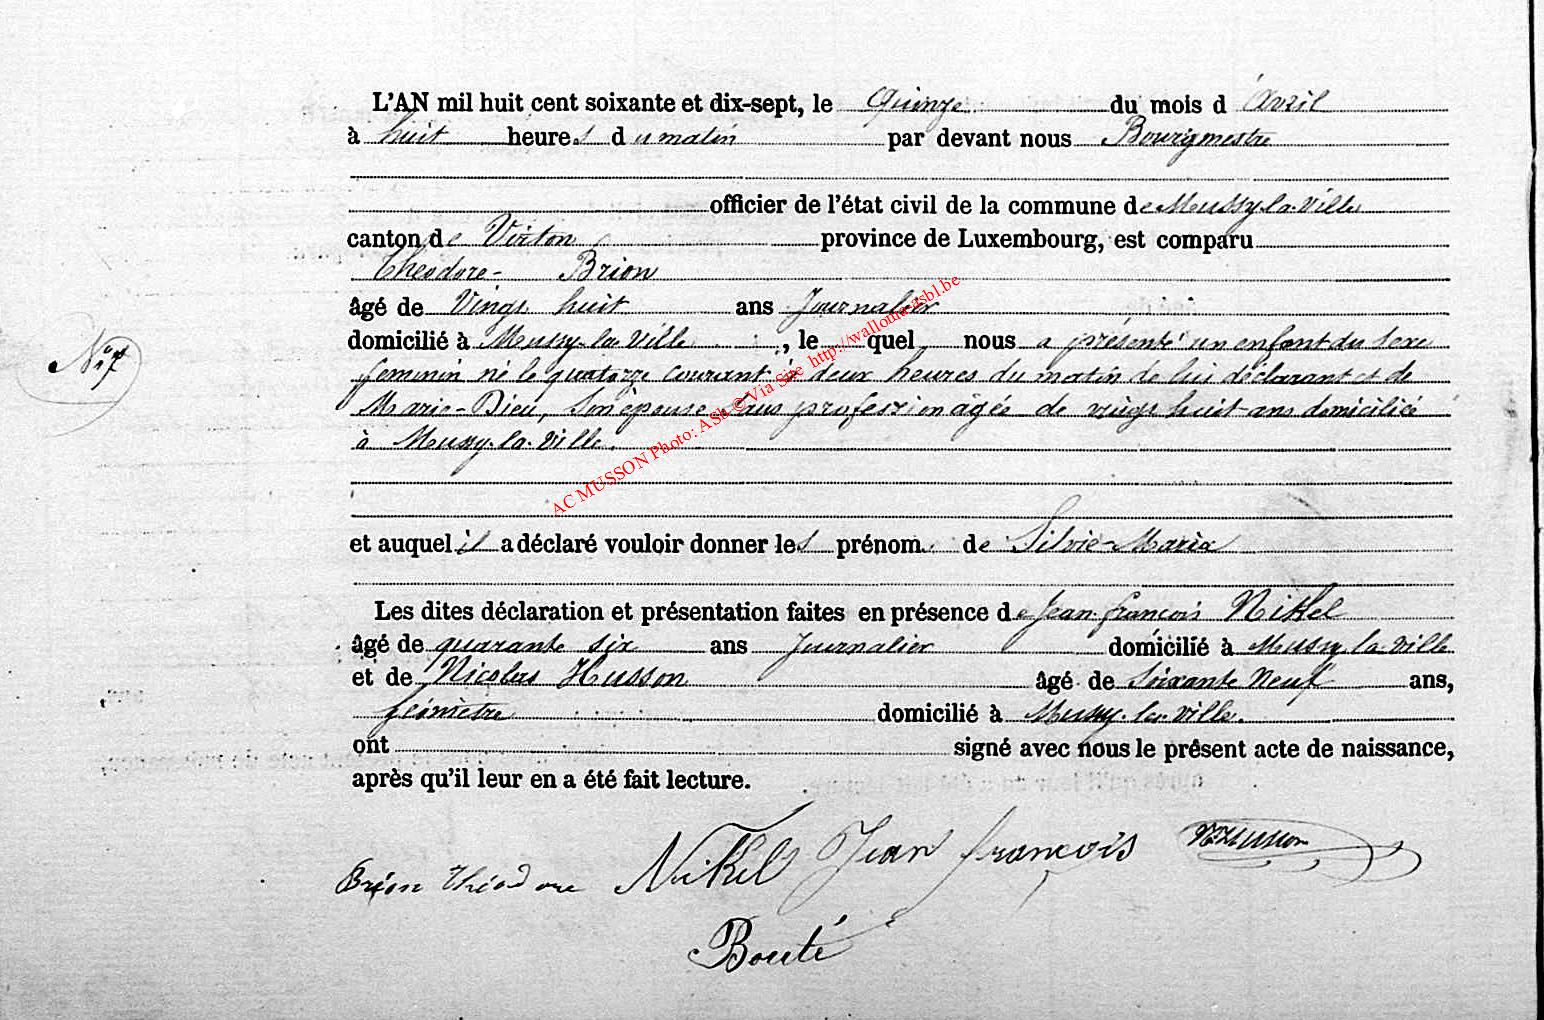 L'AN mil huit cent soixante et dix-sept, le Quinze du mois d'Avril
à huit heures du matin par devant nous Bourgmestre
officier de l'état civil de la commune de Mussy-la-Ville
canton de Virton province de Luxembourg, est comparu
Théodore- Brion
âgé de Vingt huit ans Journalier
domicilié à Mussy-la Ville, le quel nous a présenté un enfant du Sexe
N° 7
feminin né le quatorze courant à deux heures du matin de lui déclarant et de
Marie-Dieu, Son épouse sans profession âgée de vingt huit ans domiciliée
à Mussy-la-Ville.
et auquel il a déclaré vouloir donner les prénoms de Silvie-Maria
Les dites déclaration et présentation faites en présence de Jean-françois Nikel
âgé de quarante six ans Journalier domicilié à Mussy la Ville
et de Nicolas Husson âgé de Soixante Neuf ans,
géomètre domicilié à Mussy-la-Ville.
ont signé avec nous le présent acte de naissance,
après qu'il leur en a été fait lecture.
Brion Théodore Nikel Jean françois N Husson
Bouté
AC MUSSON Photo: ASh © Via Site http://wallouru-asbl.be